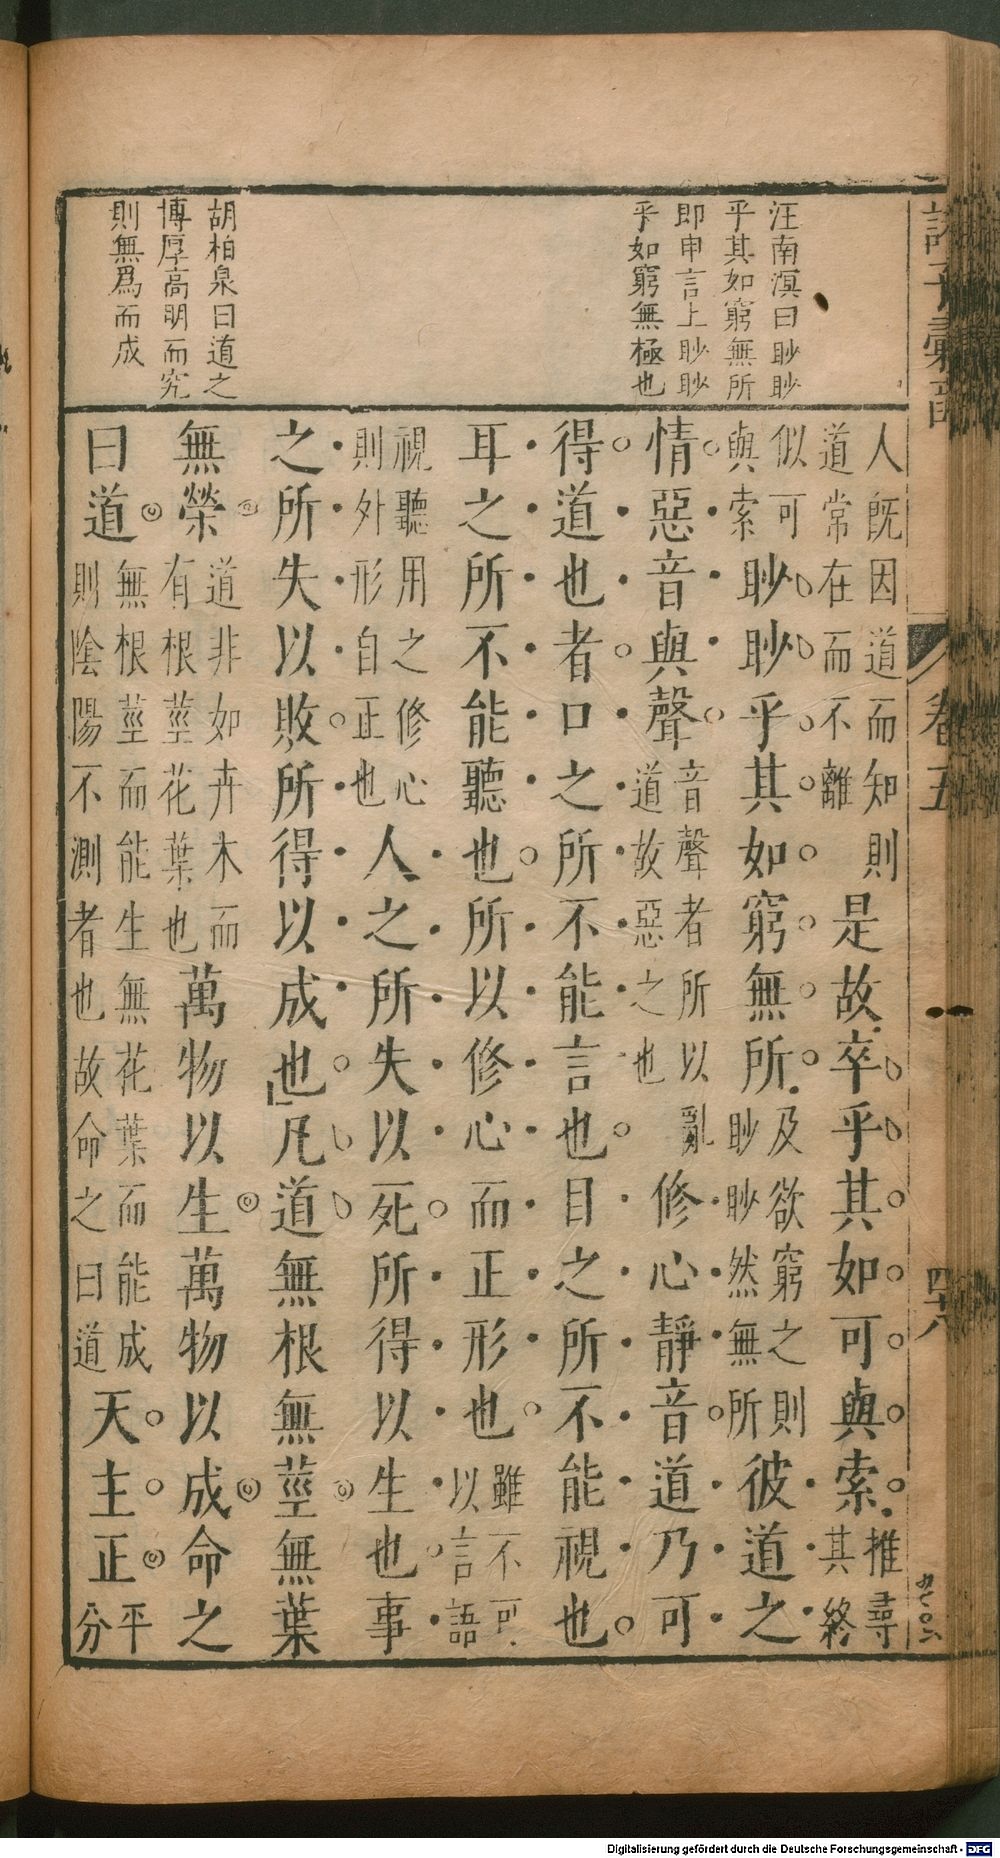 諸子彙函
卷五
四十八
汪南溟曰眇眇
乎其如窮無所
即申言上眇眇
乎如窮無極也
胡柏泉曰道之
博厚高明而究
則無爲而成
人既因道而知則道常在而不離是故卒乎其如可與索推尋其終
似可與索眇眇乎其如窮無所及欲窮之則眇眇然無所彼道之
情惡音與聲音聲者所以亂道故惡之也修心靜音道乃可
得道也者口之所不能言也目之所不能視也
耳之所不能聽也所以修心而正形也雖不可以言語
視聽用之修心則外形自正也人之所失以死所得以生也事
之所失以敗所得以成也凡道無根無莖無葉
無榮道非如卉木而有根莖花葉也萬物以生萬物以成命之
曰道無根莖而能生無花葉而能成則陰陽不測者也故命之曰道天主正平分
Digitalisierung gefördert durch die Deutsche Forschungsgemeinschaft - DFG